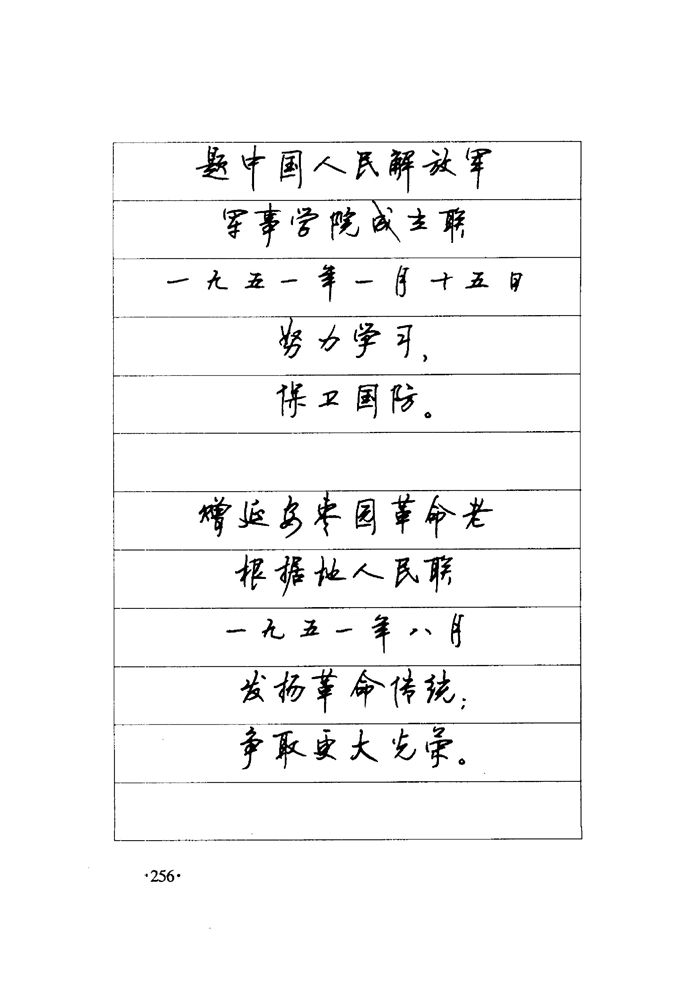 题中国人民解放军
军事学院成立联
一九五一年一月十五日
努力学习，
保卫国防。
赠延安枣园革命老
根据地人民联
一九五一年八月
发扬革命传统；
争取更大光荣。
·256·